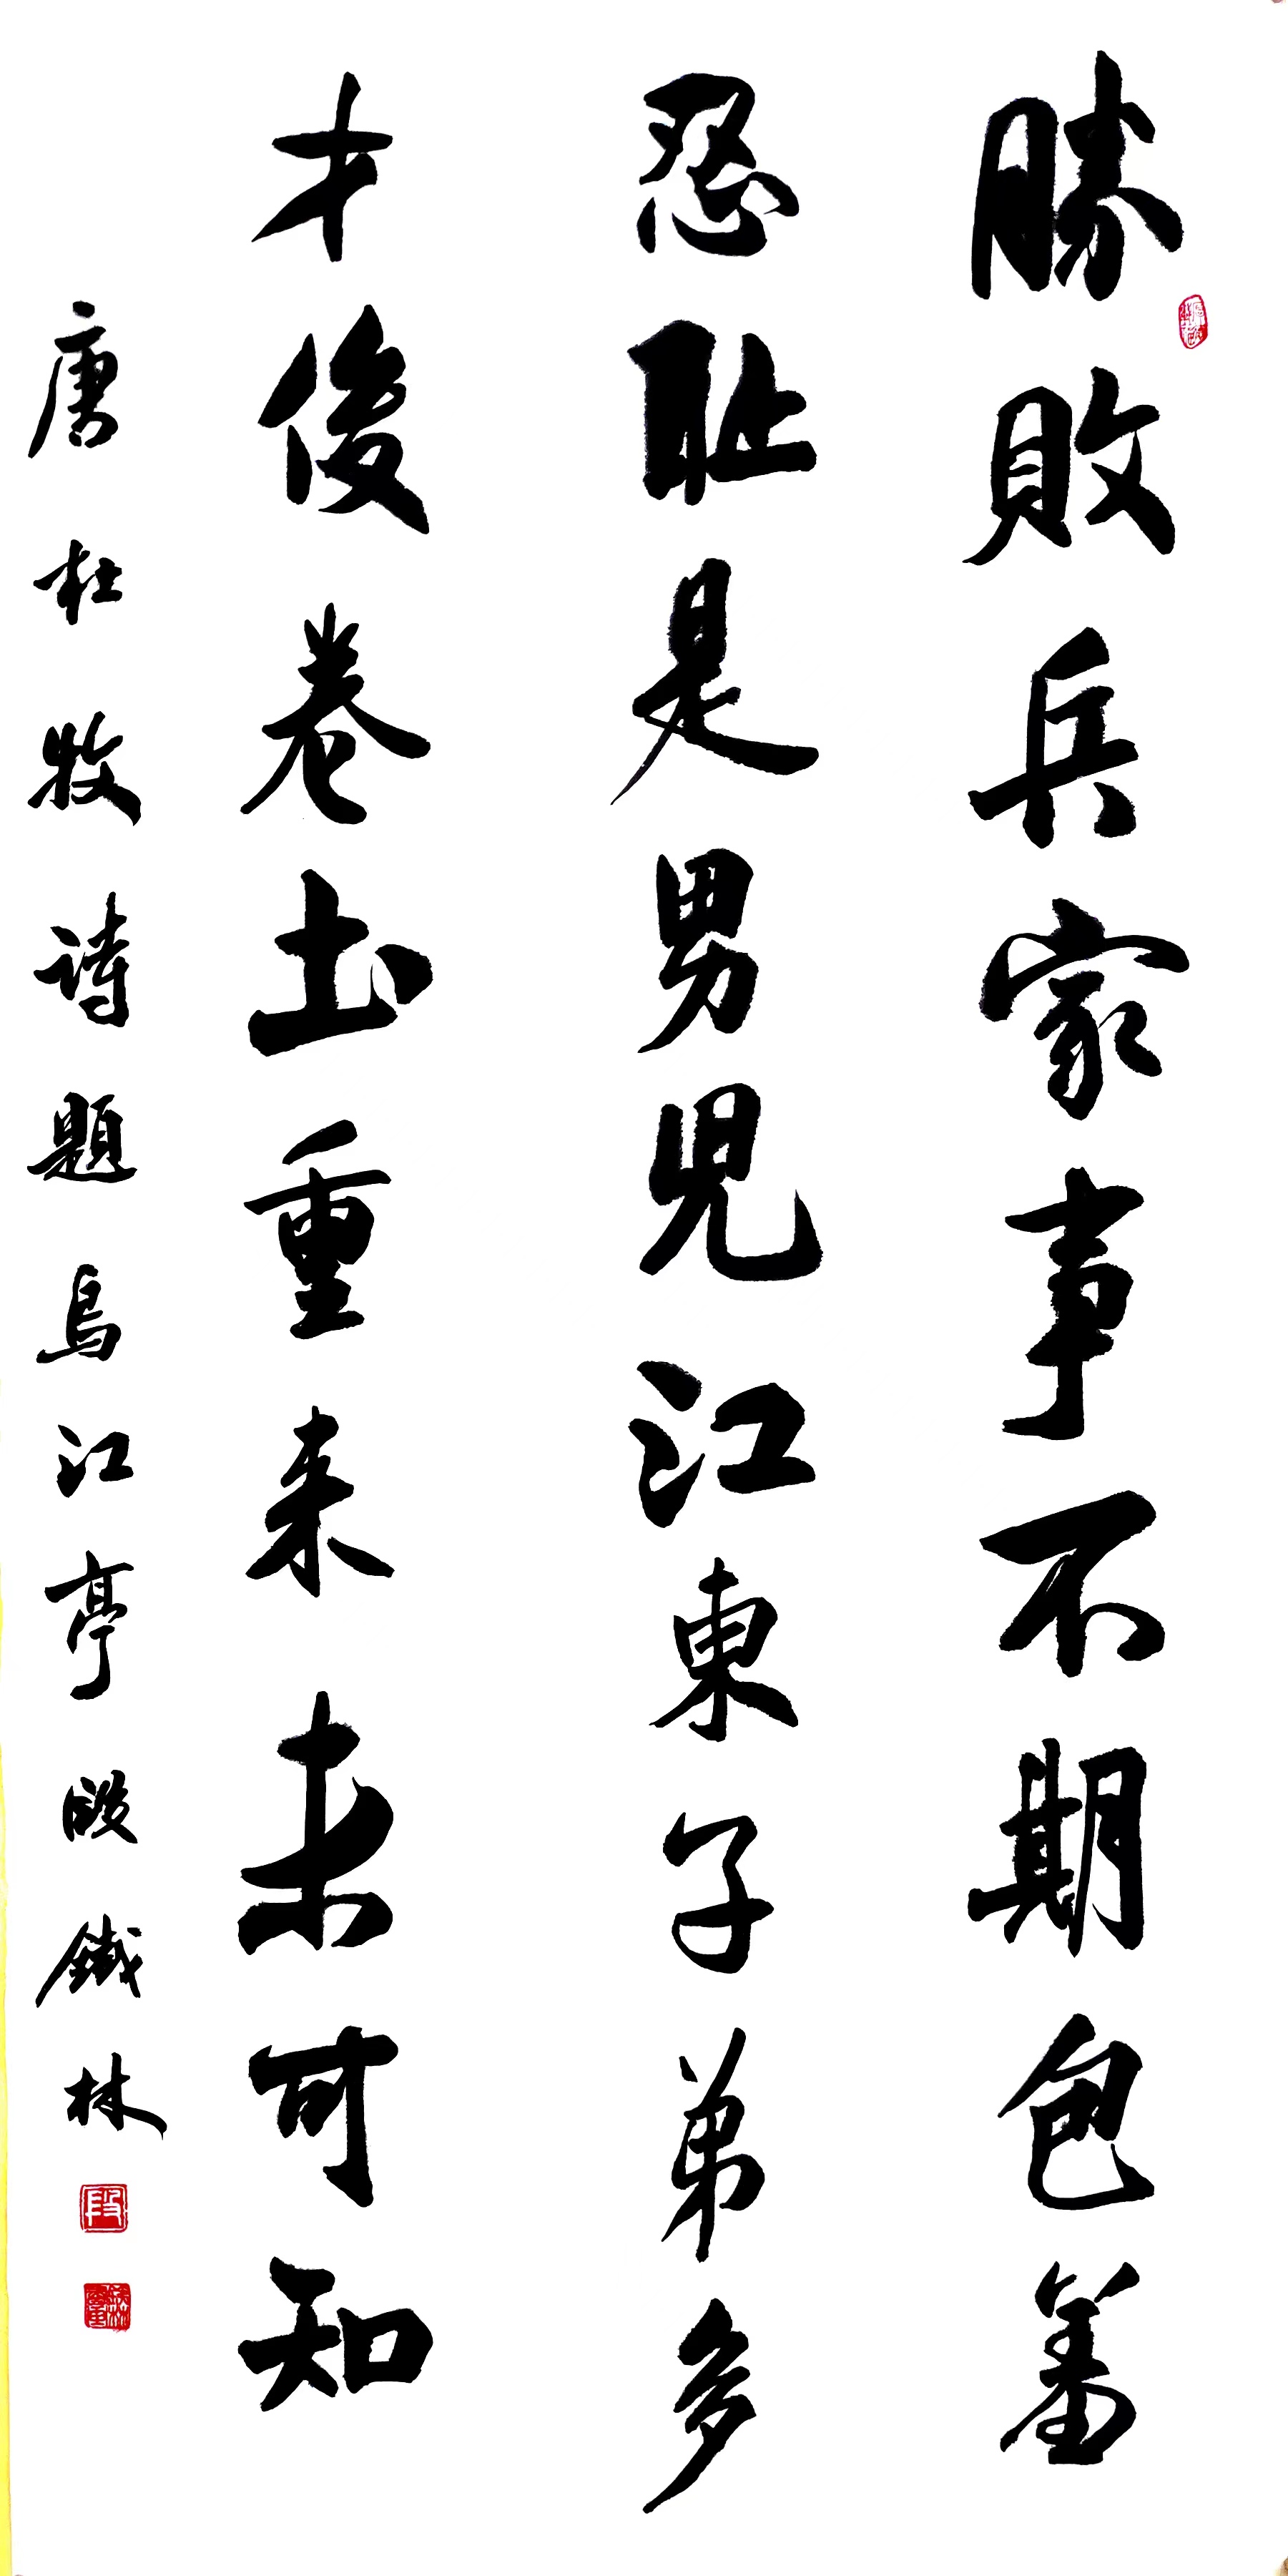 勝敗兵家事不期包羞
忍恥是男兒江東子弟多
才俊卷土重来未可知
唐杜牧詩題烏江亭段鐵林
段